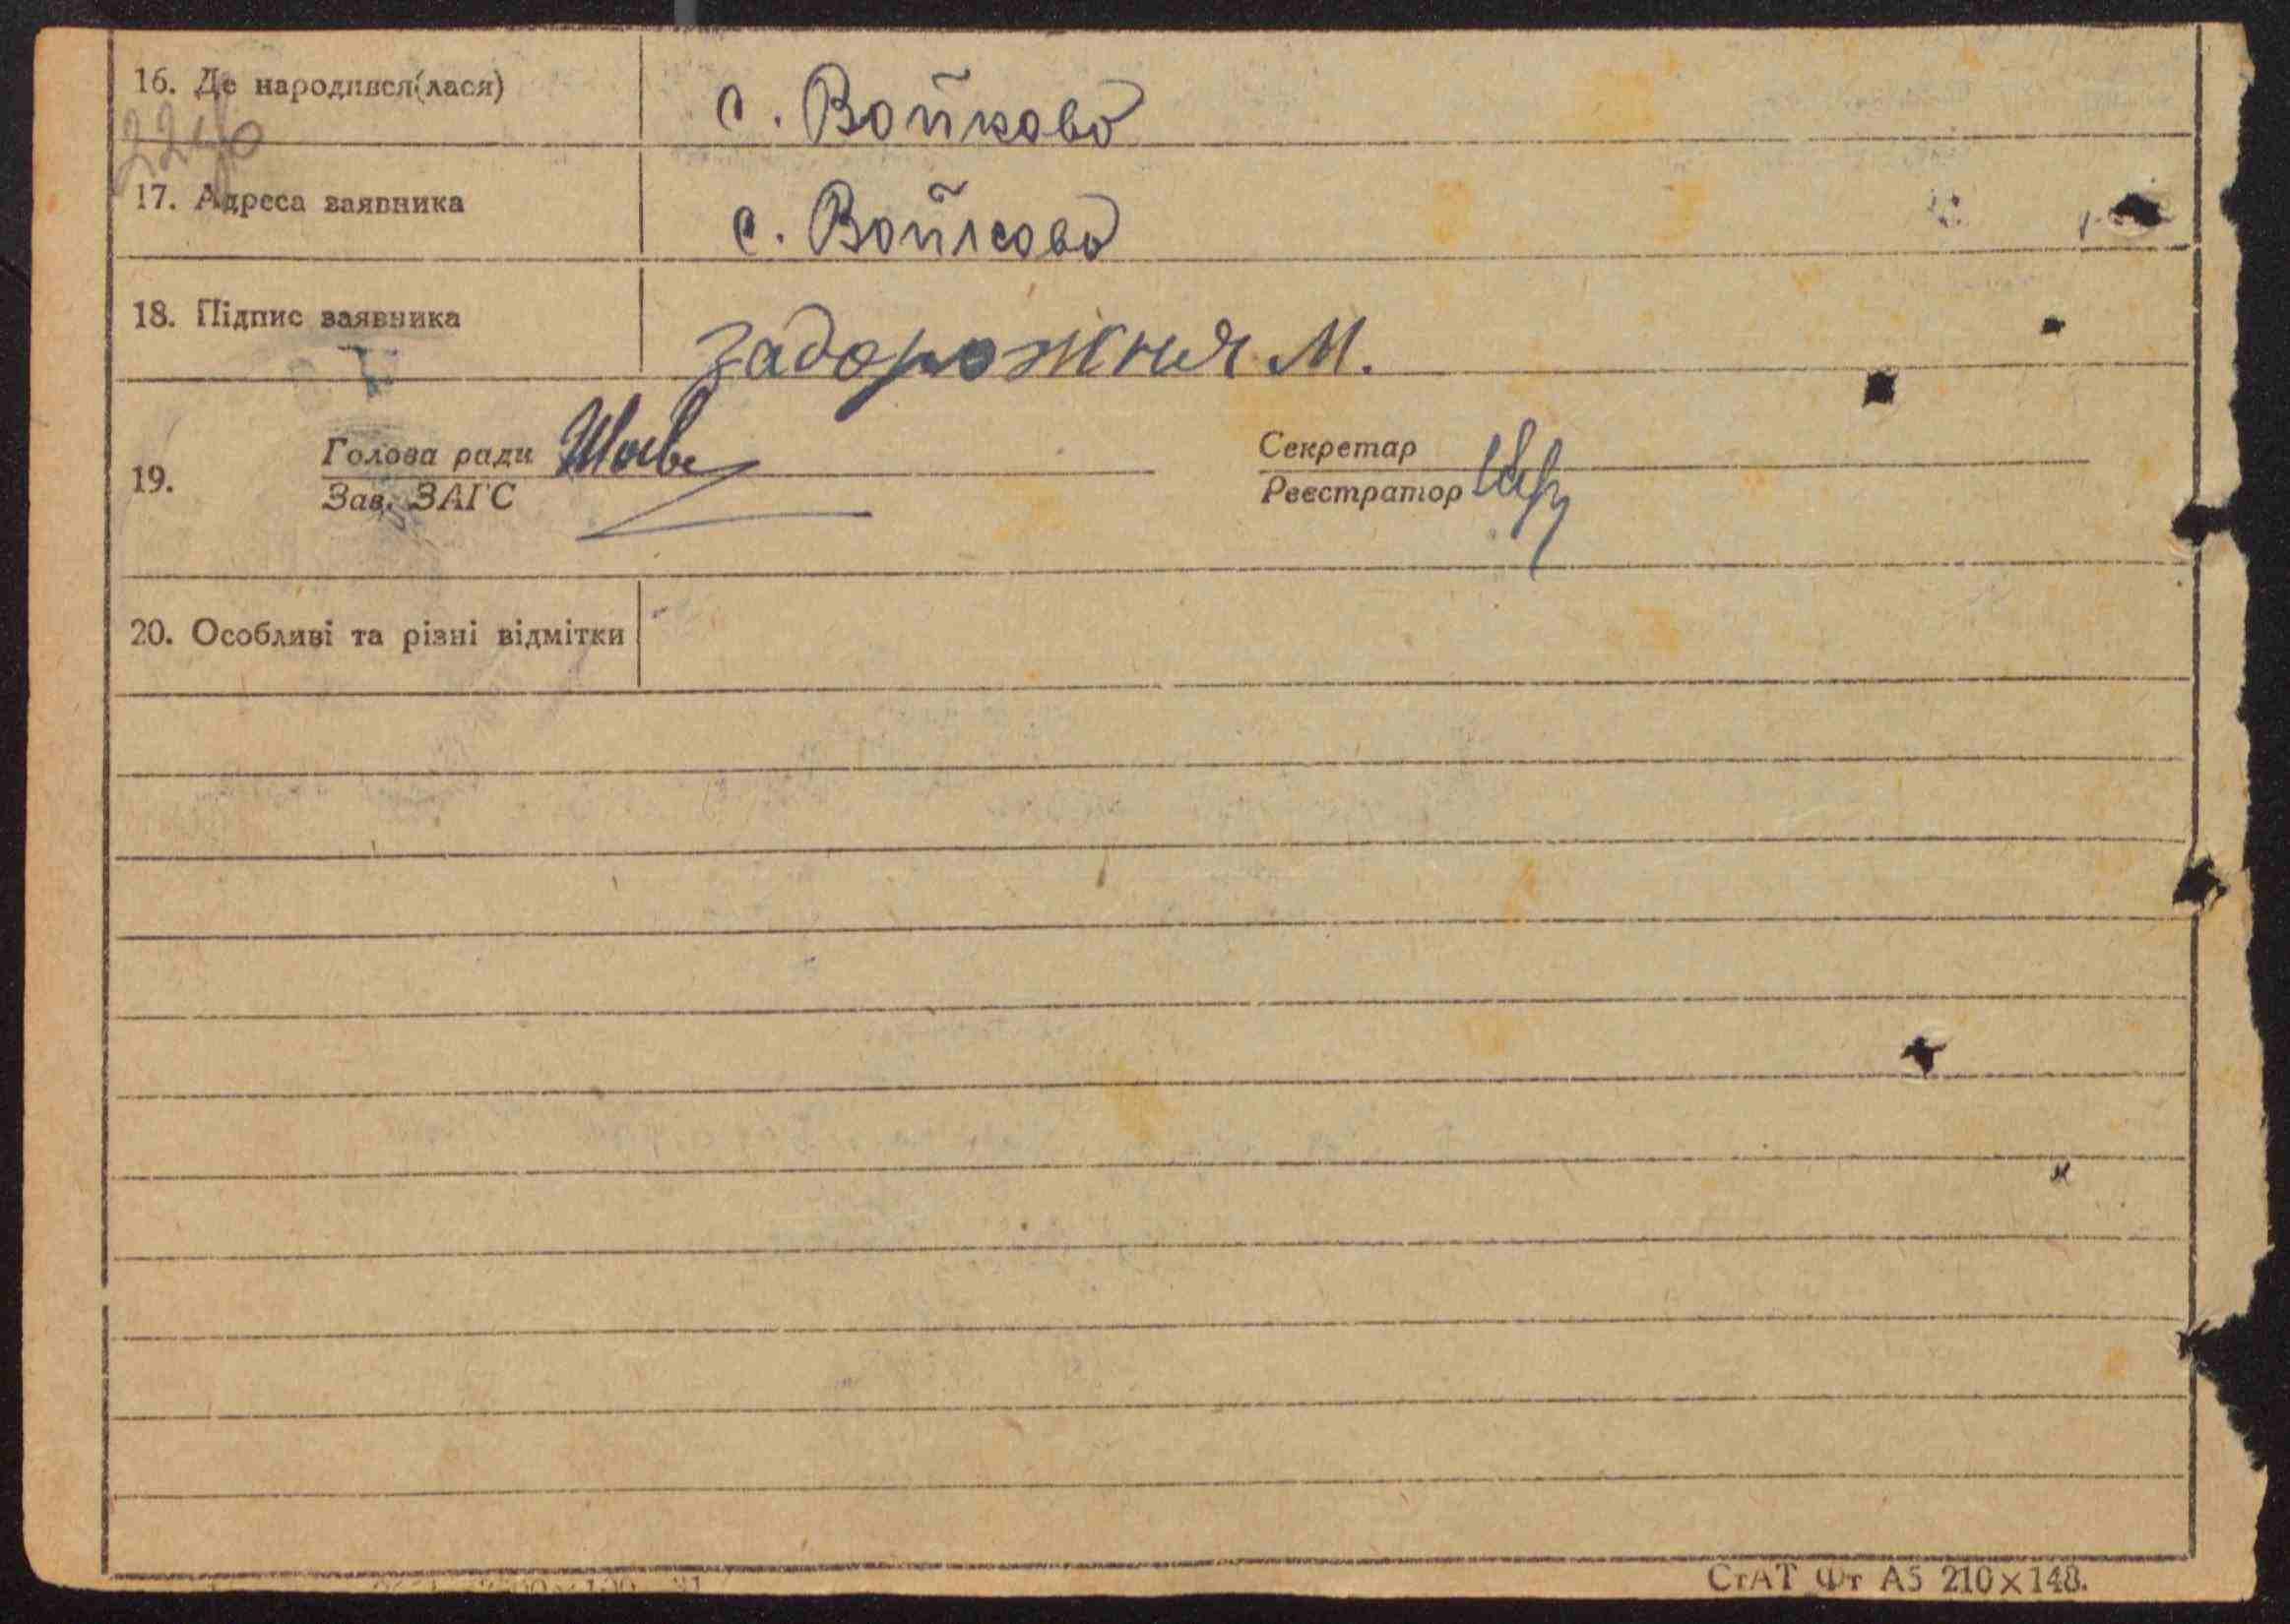 16. Де народився(лася) с. Войково
17. Адреса заявника с. Войково
18. Підпис заявника Задорожня М.
19. Голова ради Секретар
Зав. ЗАГС Реєстратор
20. Особливі та різні відмітки
СтАТ Фт А5 210×148.